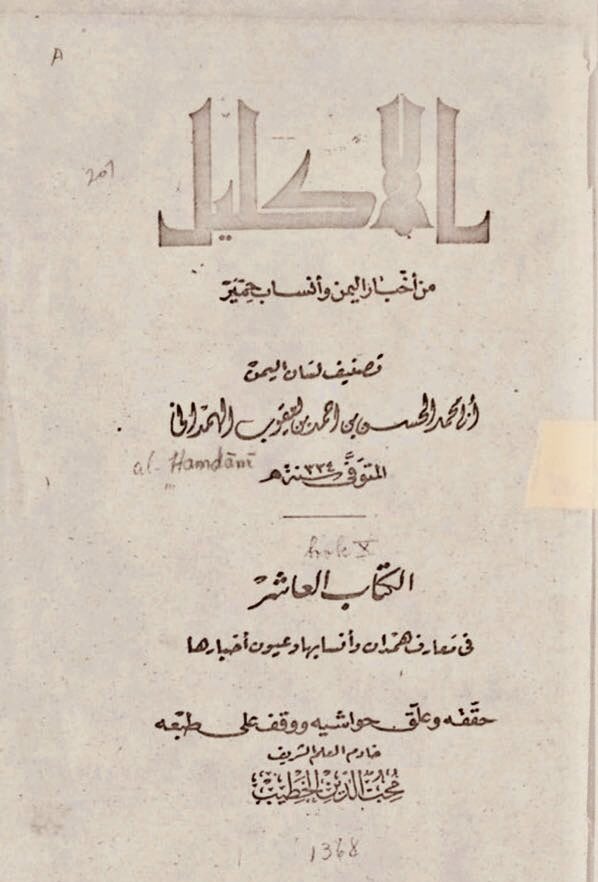 A
الإكليل
207
من أخبار اليمن وأنساب حمير
تصنيف لسان اليمن
أبي محمد الحسن بن أحمد بن يعقوب الهمداني
المتوفى سنة ٣٣٤ هـ
al-Hamdānī
book X
الكتاب العاشر
في معارف همدان وأنسابها وعيون أخبارها
حققه وعلق حواشيه ووقف على طبعه
خادم العلم الشريف
محب الدين الخطيب
1368